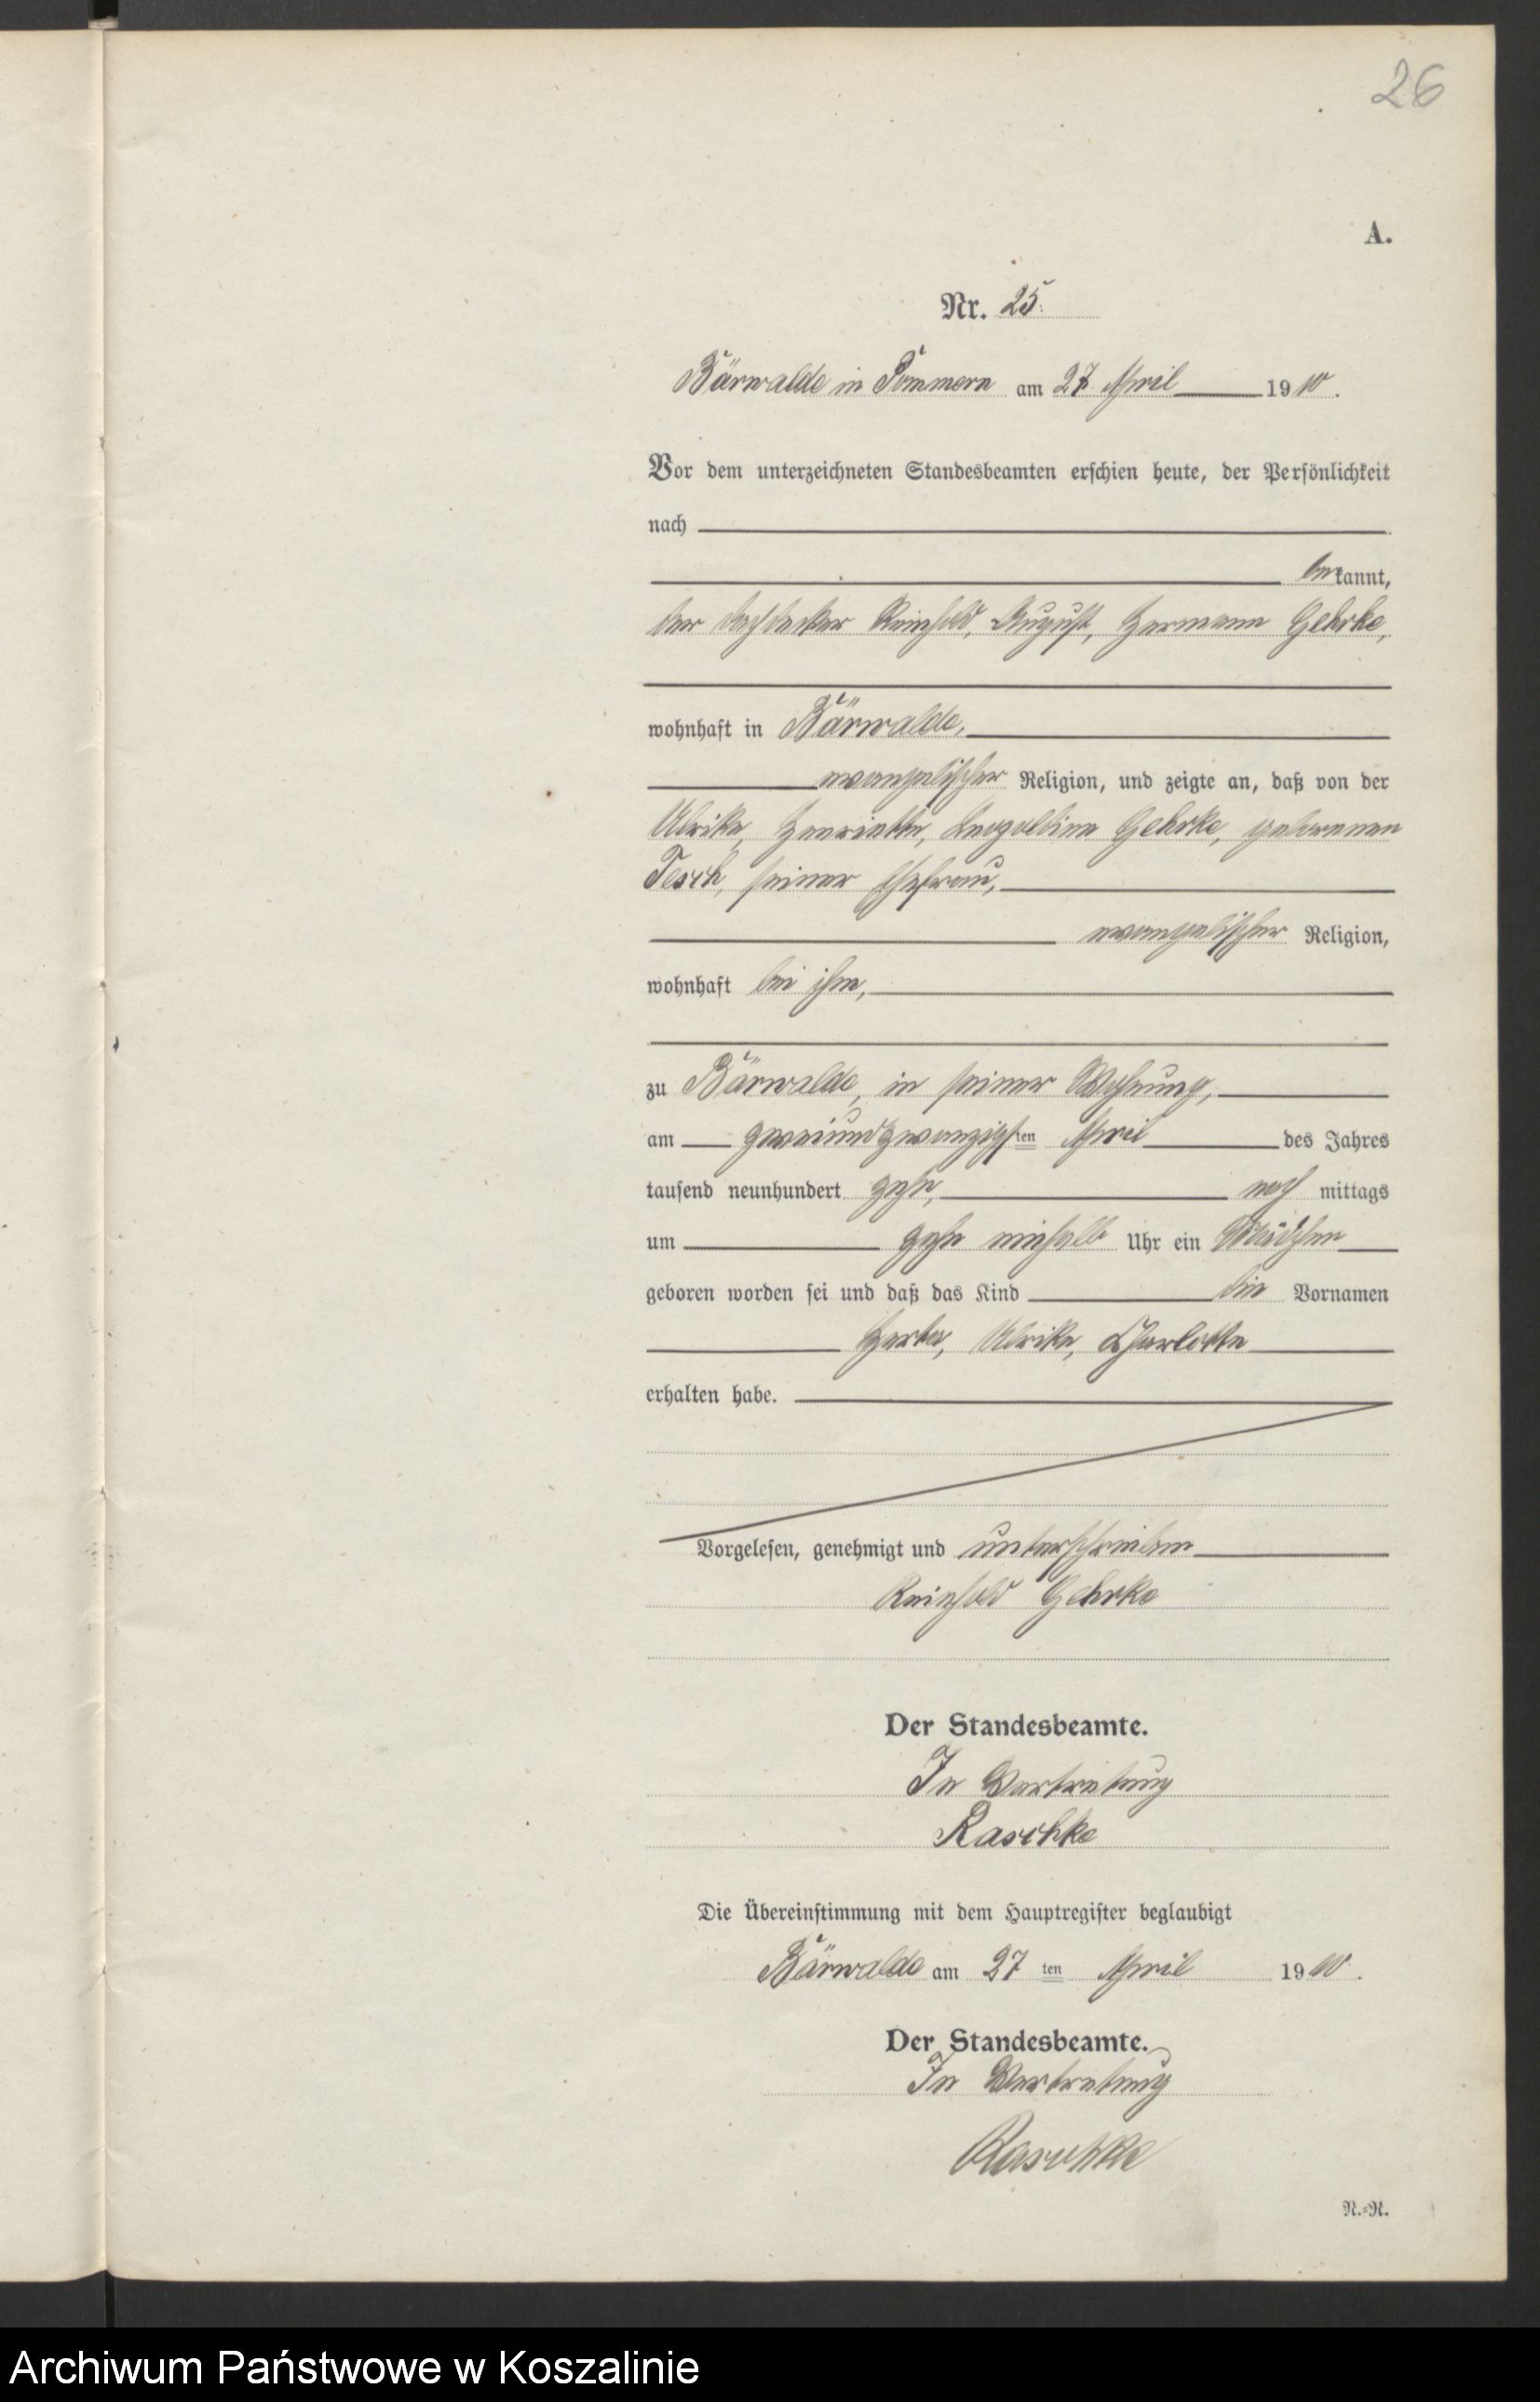 26
A.
Nr. 25.
Bärwalde in Pommern am 27. April 1910.
Vor dem unterzeichneten Standesbeamten erschien heute, der Persönlichkeit
nach
bekannt,
der Dachdecker Reinhold, August, Hermann Gehrke,
wohnhaft in Bärwalde,
evangelischer Religion, und zeigte an, daß von der
Ulrike, Henriette, Leopoldine Gehrke, geborenen
Tesch, seiner Ehefrau,
evangelischer Religion,
wohnhaft bei ihm,
zu Bärwalde, in seiner Wohnung,
am zweiundzwanzigsten April des Jahres
tausend neunhundert zehn, nach mittags
um zehn einhalb Uhr ein Mädchen
geboren worden sei und daß das Kind die Vornamen
Herta, Ulrike, Charlotte
erhalten habe.
Vorgelesen, genehmigt und unterschrieben
Reinhold Gehrke
Der Standesbeamte.
In Vertretung
Raschke
Die Übereinstimmung mit dem Hauptregister beglaubigt
Bärwalde am 27 ten April 1910.
Der Standesbeamte.
In Vertretung
Raschke
N.=R.
Archiwum Państwowe w Koszalinie